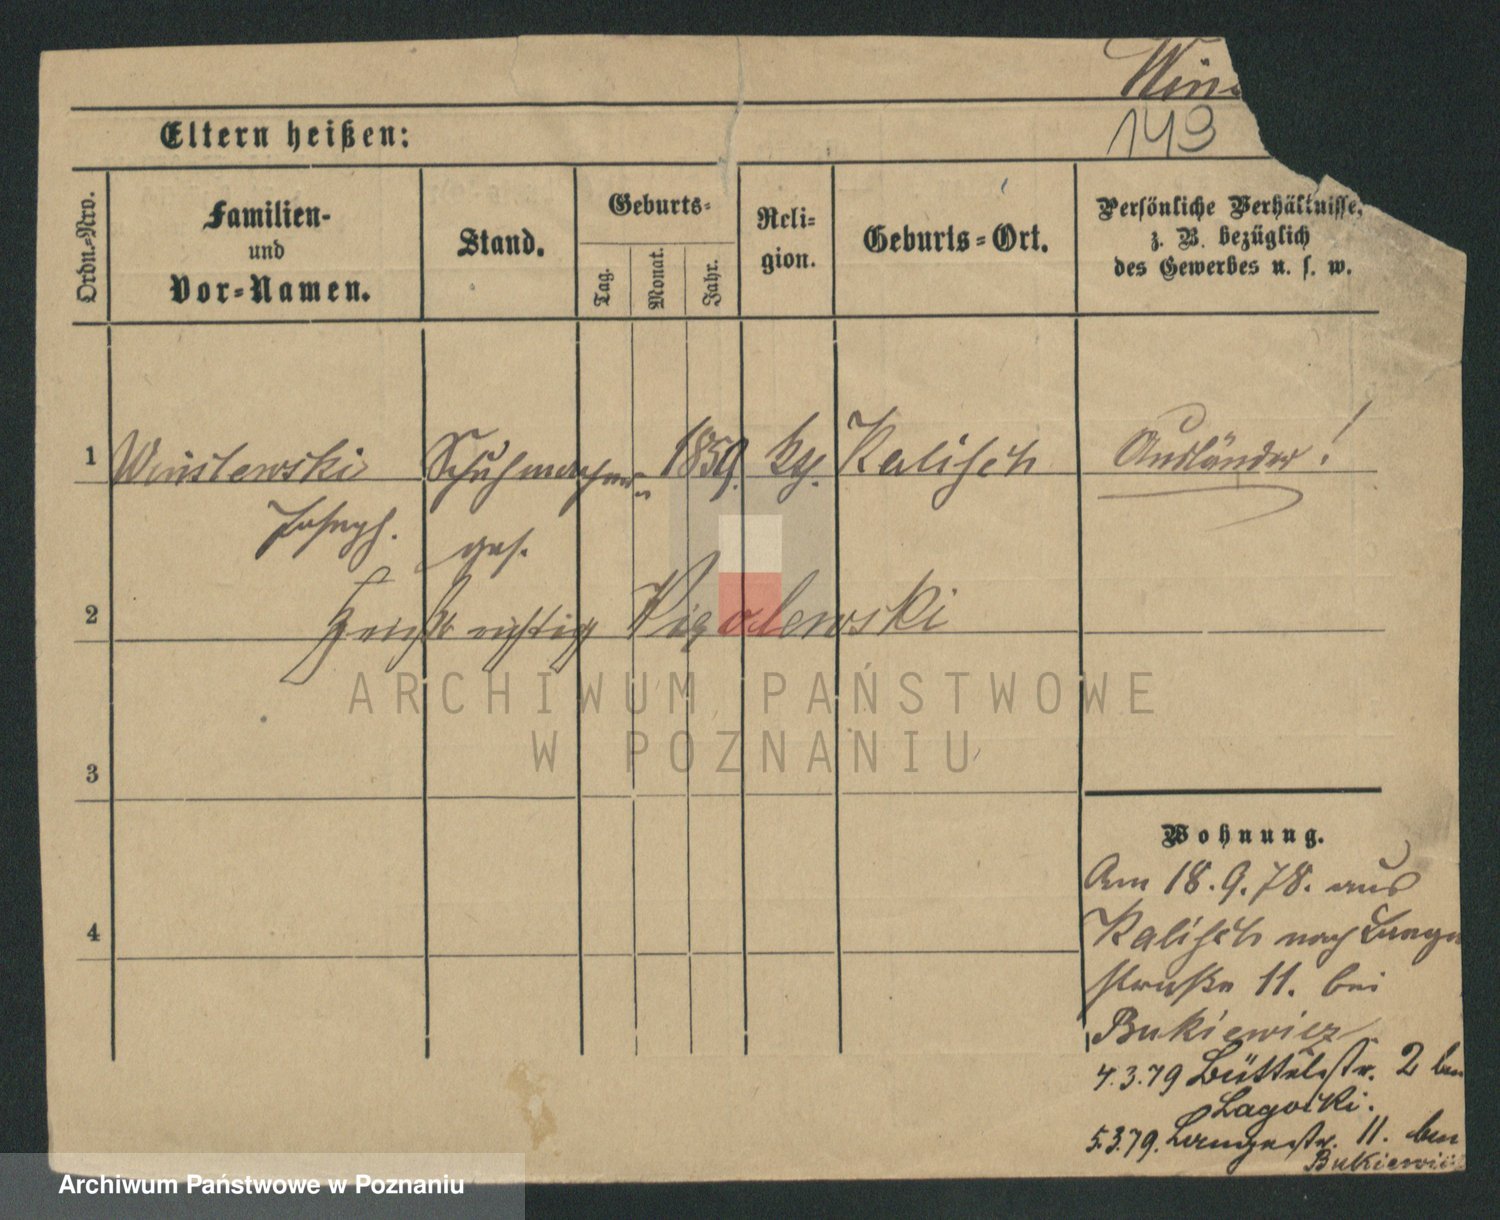 149
Eltern heißen:
Ordn.=Nro.
Familien-
und
Vor=Namen.
Stand.
Geburts=
Tag.
Monat.
Jahr.
Reli=
gion.
Geburts=Ort.
Persönliche Verhältnisse,
z. B. bezüglich
des Gewerbes u. s. w.
1 Schuhmacher 1859. Kalisch Ausländer!
Joseph. ges.
2 heißt richtig
ARCHIWUM PAŃSTWOWE
W POZNANIU
3
Wohnung.
Am 18.9.78. aus
4
Kalisch nach Lange
straße 11. bei
Bukiewicz
4.3.79 Büttelstr. 2 bei
5.3.79. Langestr. 11. bei
Bukiewicz
Archiwum Państwowe w Poznaniu